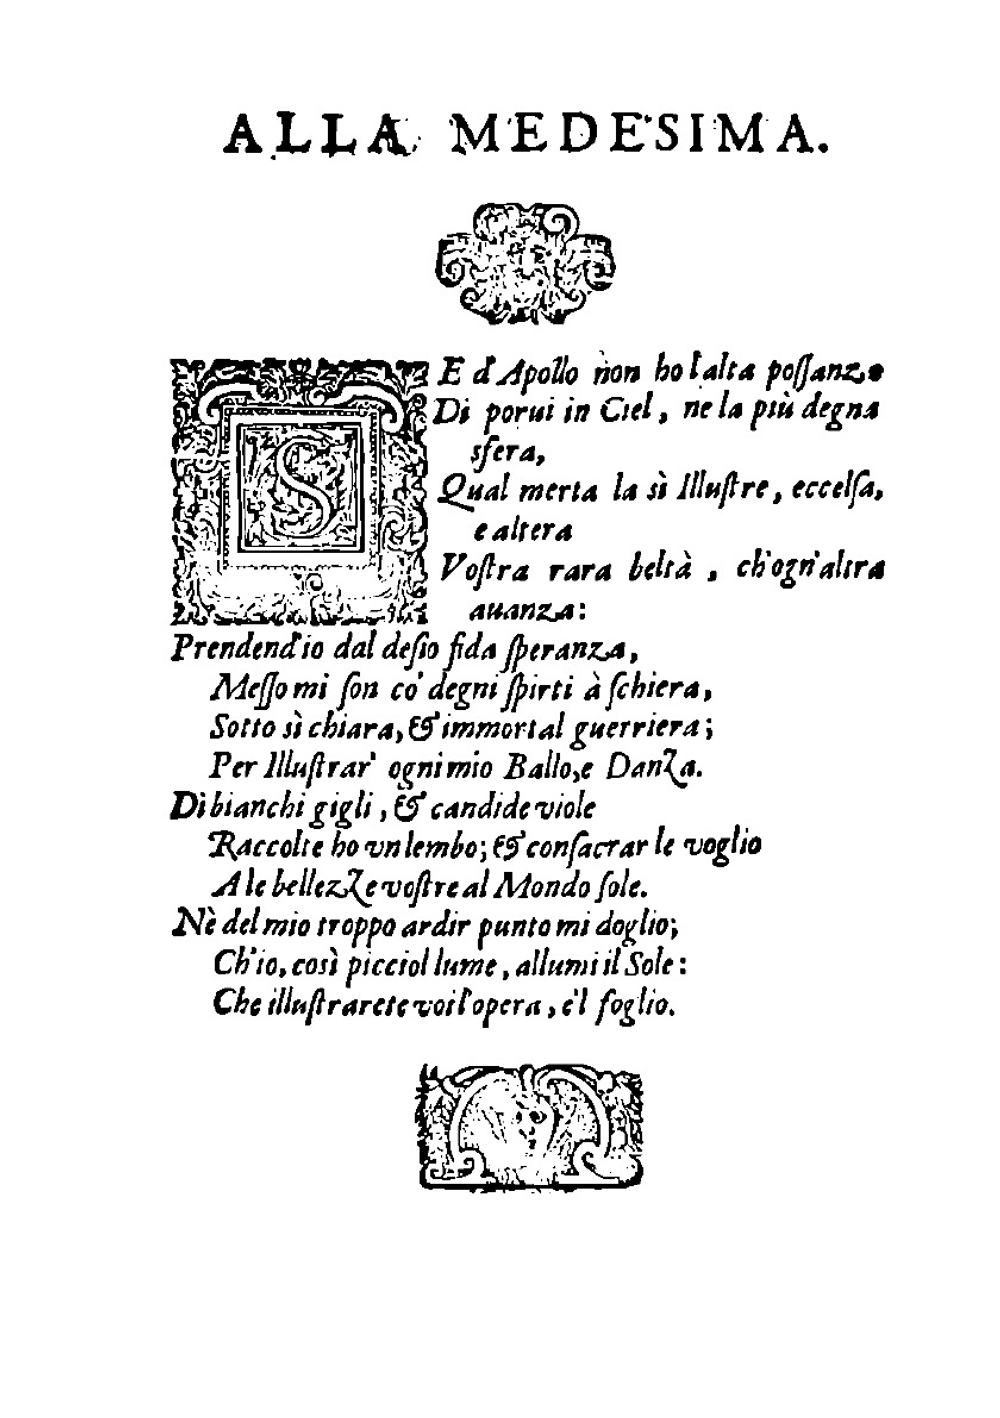 ALLA MEDESIMA.
SE d'Apollo non ho l'alta poſſanza
Di porui in Ciel, ne la più degna
sfera,
Qual merta la sì Illuſtre, eccelſa,
e altera
Voſtra rara beltà, ch'ogn'altra
auanza:
Prendend'io dal deſio fida ſperanza,
Meſſo mi ſon co' degni ſpirti à ſchiera,
Sotto sì chiara, & immortal guerriera;
Per Illuſtrar' ogni mio Ballo, e Danza.
Di bianchi gigli, & candide viole
Raccolte ho vn lembo; & conſacrar le voglio
A le bellezze voſtre al Mondo ſole.
Nè del mio troppo ardir punto mi doglio;
Ch'io, così picciol lume, allumi il Sole:
Che illuſtrarete voi l'opera, e'l foglio.